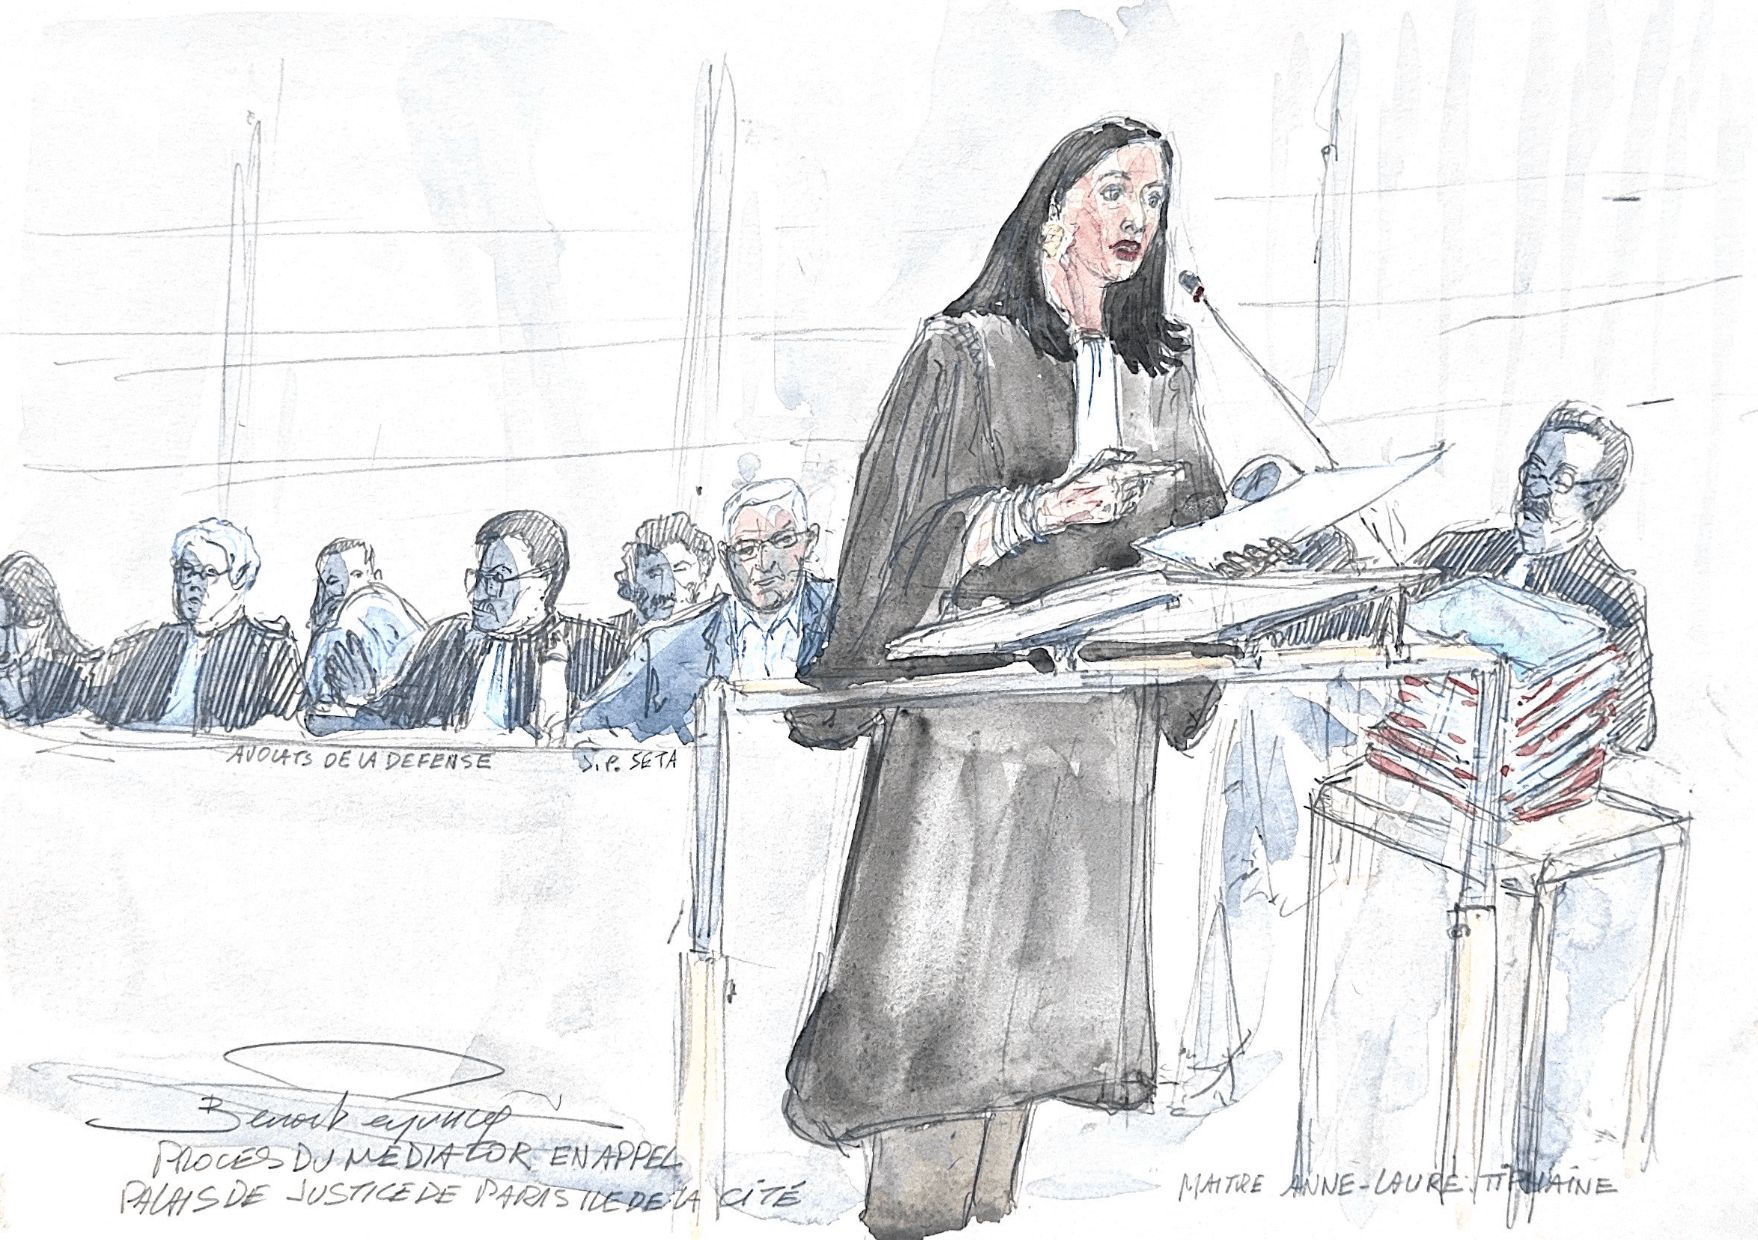 AVOCATS DE LA DEFENSE
J.P. SETA
Benoit Peyrucq
PROCES DU MEDIATOR EN APPEL
PALAIS DE JUSTICE DE PARIS ILE DE LA CITÉ
MAITRE ANNE-LAURE TIPHAINE